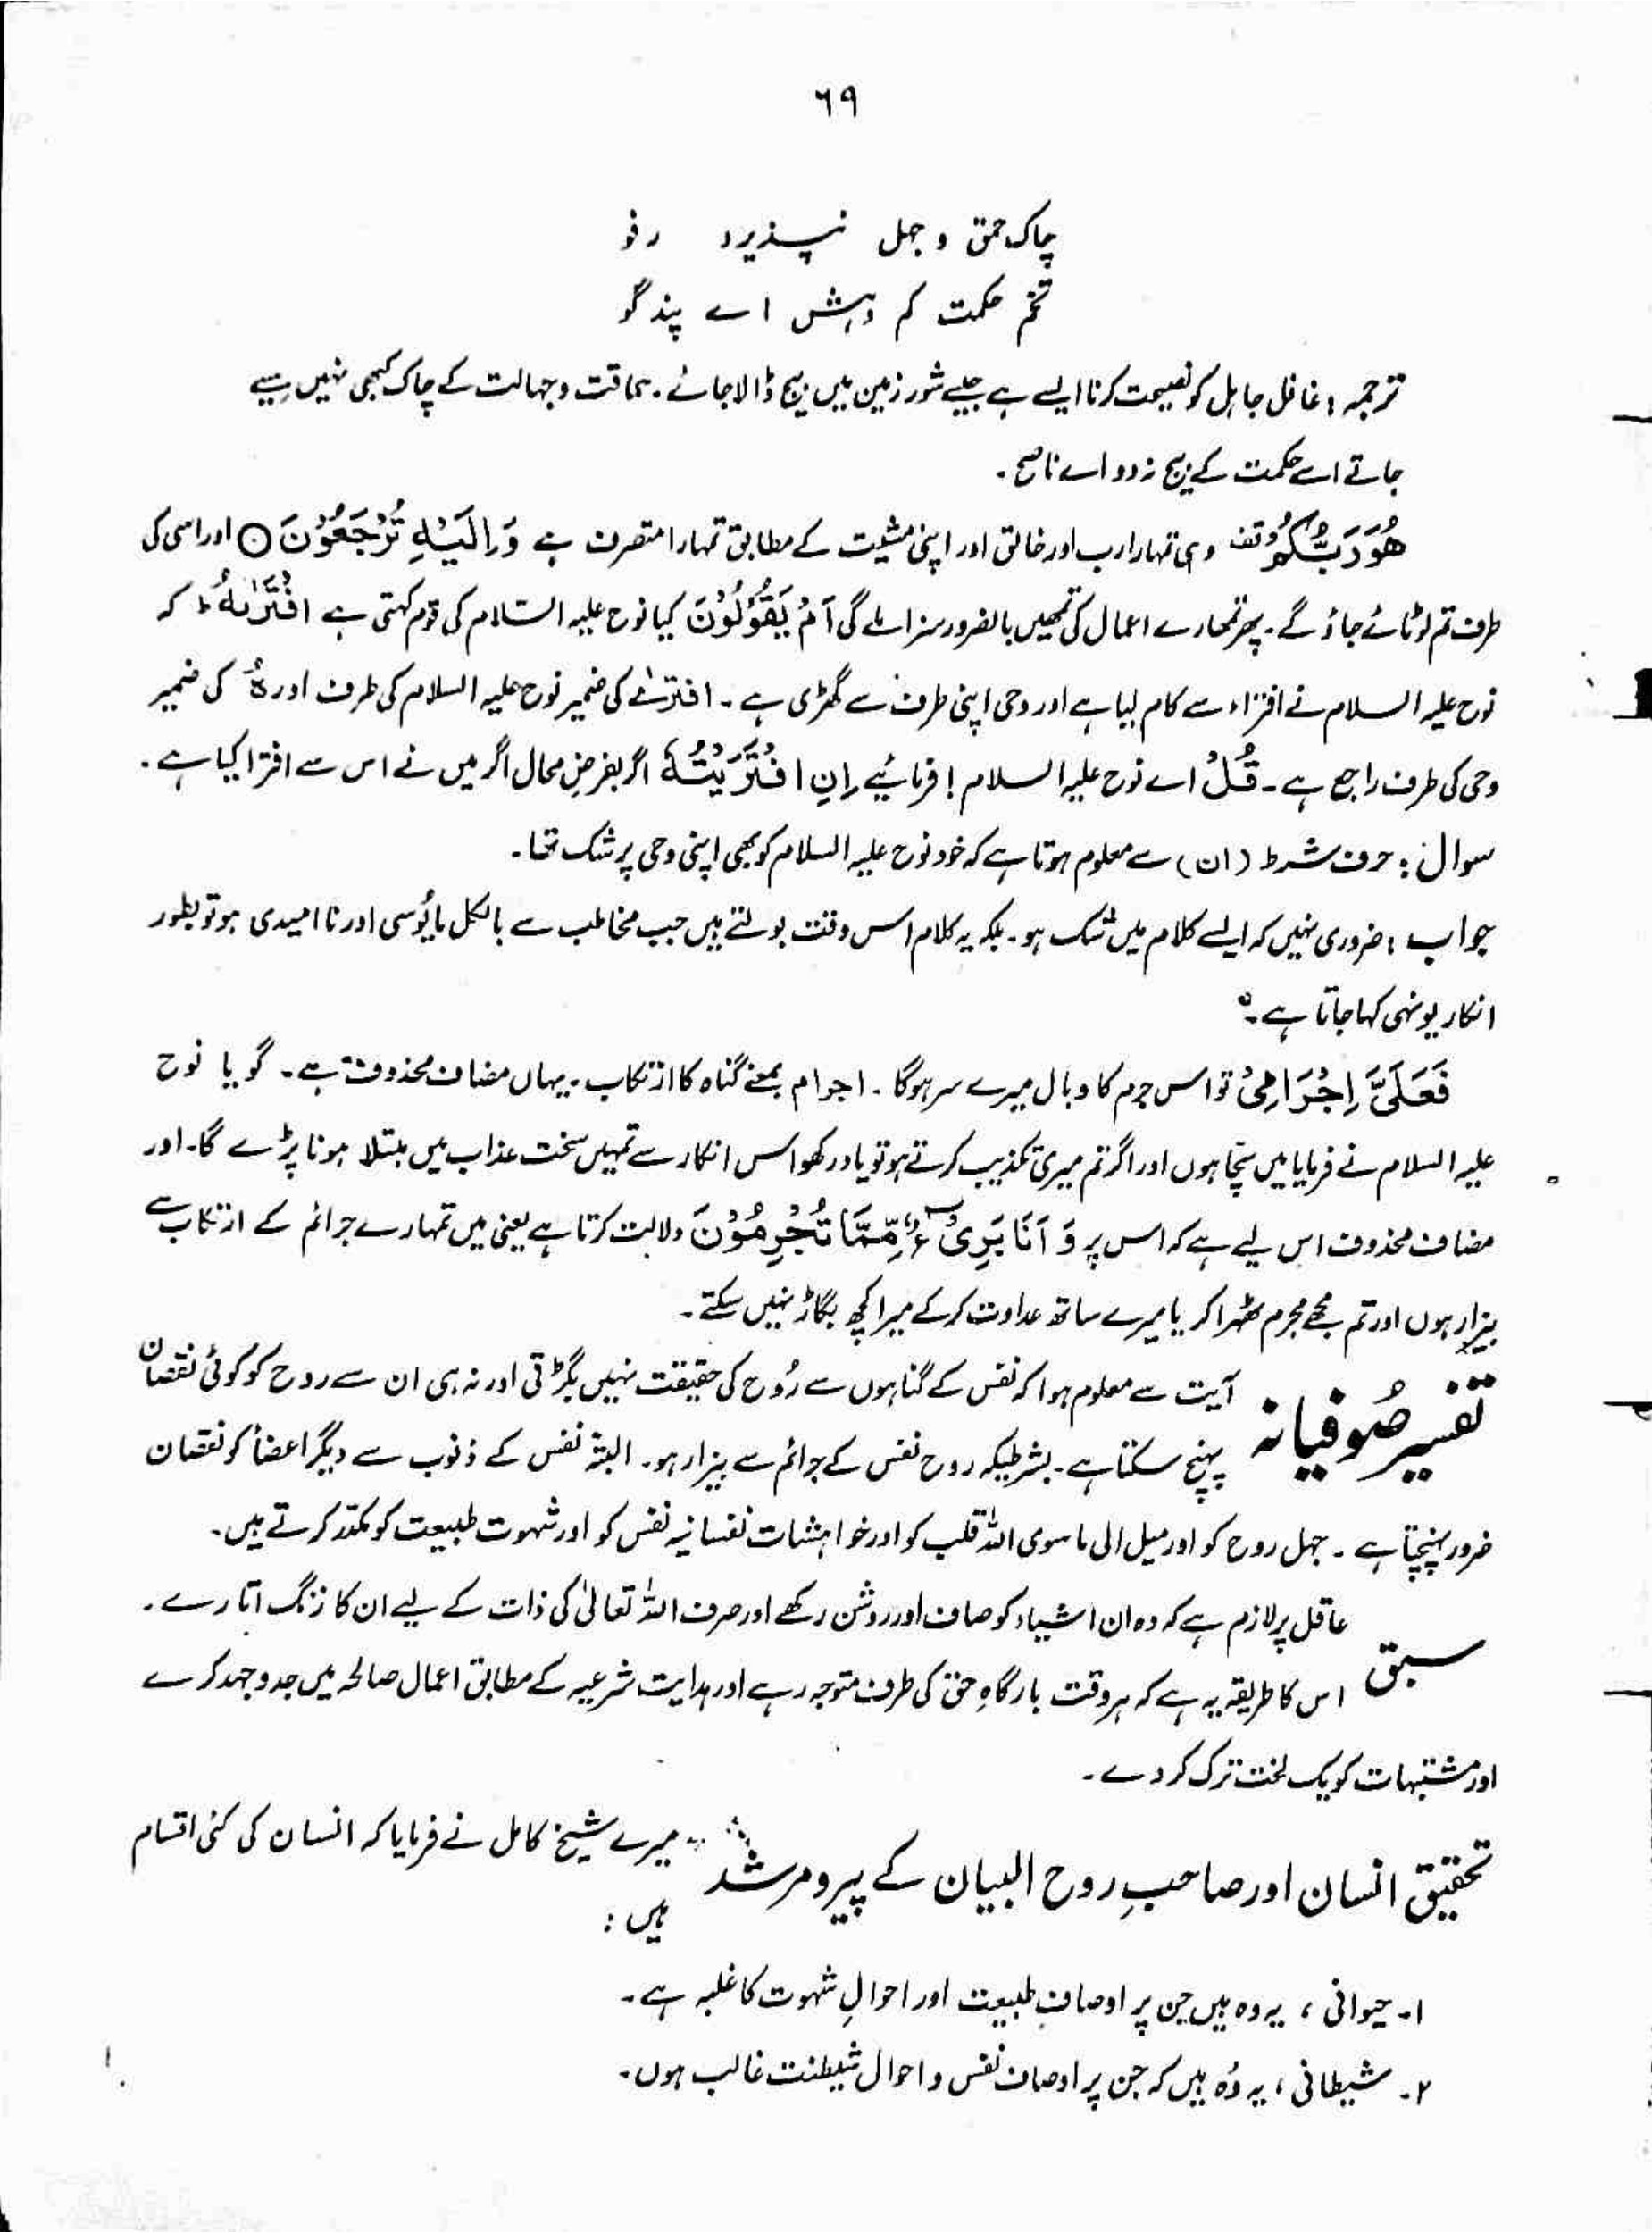 ٦٩
چاک حمق و جہل نپذیرد رفو
تخم حکمت کم دہش اے پند گو
ترجمہ : غافل جاہل کو نصیحت کرنا ایسے ہے جیسے شور زمین میں بیج ڈالا جائے ۔ حماقت و جہالت کے چاک کبھی نہیں سیے
جاتے اسے حکمت کے بیج نہ دو اے ناصح ۔
هُوَ رَبُّكُمْ قف وہی تمہارا رب اور خالق اور اپنی مشیت کے مطابق تمہارا متصرف ہے وَ اِلَيْهِ تُرْجَعُوْنَ ○ اور اسی کی
طرف تم لوٹائے جاؤ گے ۔ پھر تمھارے اعمال کی تمھیں بالضرور سزا ملے گی اَمْ يَقُوْلُوْنَ کیا نوح علیہ السّلام کی قوم کہتی ہے افْتَرٰىهُ ط کہ
نوح علیہ السلام نے افتراء سے کام لیا ہے اور وحی اپنی طرف سے گھڑی ہے ۔ افترٰے کی ضمیر نوح علیہ السلام کی طرف اور ہُ کی ضمیر
وحی کی طرف راجع ہے ۔ قُلْ اے نوح علیہ السلام ! فرمائیے اِنِ افْتَرَيْتُهٗ اگر بفرضِ محال اگر میں نے اس سے افترا کیا ہے ۔
سوال : حرف شرط (ان) سے معلوم ہوتا ہے کہ خود نوح علیہ السلام کو بھی اپنی وحی پر شک تھا ۔
جواب : ضروری نہیں کہ ایسے کلام میں شک ہو ۔ بلکہ یہ کلام اس وقت بولتے ہیں جب مخاطب سے بالکل مایُوسی اور نا امیدی ہو تو بطور
انکار یونہی کہا جاتا ہے ۔
فَعَلَيَّ اِجْرَامِيْ تو اس جرم کا وبال میرے سر ہوگا ۔ اجرام بمعنے گناہ کا ارتکاب ۔ یہاں مضاف محذوف ہے ۔ گویا نوح
علیہ السلام نے فرمایا میں سچّا ہوں اور اگر تم میری تکذیب کرتے ہو تو یاد رکھو اس انکار سے تمہیں سخت عذاب میں مبتلا ہونا پڑے گا ۔ اور
مضاف محذوف اس لیے ہے کہ اس پر وَ اَنَا بَرِيْٓءٌ مِّمَّا تُجْرِمُوْنَ دلالت کرتا ہے یعنی میں تمہارے جرائم کے ارتکاب سے
بیزار ہوں اور تم مجھے مجرم ٹھہرا کر یا میرے ساتھ عداوت کرکے میرا کچھ بگاڑ نہیں سکتے ۔
تفسیر صُوفیانہ آیت سے معلوم ہوا کہ نفس کے گناہوں سے رُوح کی حقیقت نہیں بگڑتی اور نہ ہی ان سے روح کو کوئی نقصان
پہنچ سکتا ہے ۔ بشرطیکہ روح نفس کے جرائم سے بیزار ہو ۔ البتہ نفس کے ذنوب سے دیگر اعضأ کو نقصان
ضرور پہنچتا ہے ۔ جہل روح کو اور میل الی ماسوی اللہ قلب کو اور خواہشات نفسانیہ نفس کو اور شہوت طبیعت کو مکدّر کرتے ہیں ۔
سبق عاقل پر لازم ہے کہ وہ ان اشیاء کو صاف اور روشن رکھے اور صرف اللہ تعالیٰ کی ذات کے لیے ان کا زنگ اتارے ۔
اس کا طریقہ یہ ہے کہ ہر وقت بارگاہِ حق کی طرف متوجہ رہے اور ہدایت شرعیہ کے مطابق اعمال صالحہ میں جدوجہد کرے
اور مشتبہات کو یک لخت ترک کر دے ۔
تحقیق انسان اور صاحبِ روح البیان کے پیر و مرشد میرے شیخ کامل نے فرمایا کہ انسان کی کئی اقسام
ہیں :
۱۔ حیوانی ، یہ وہ ہیں جن پر اوصافِ طبیعت اور احوالِ شہوت کا غلبہ ہے ۔
۲۔ شیطانی ، یہ وُہ ہیں کہ جن پر اوصاف نفس و احوال شیطنت غالب ہوں ۔